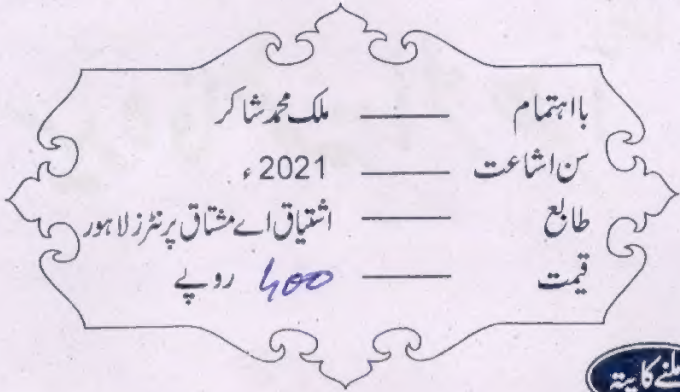 بااہتمام ــــــ ملک محمد شاکر
سن اشاعت ــــــ 2021ء
طابع ــــــ اشتیاق اے مشتاق پرنٹرز لاہور
قیمت ــــــ 400 روپے
ملنے کا پتہ